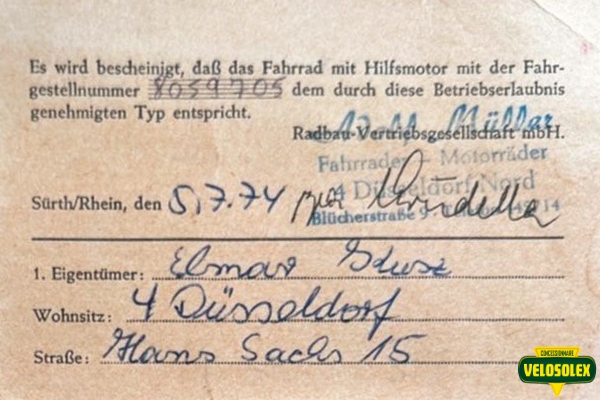 Es wird bescheinigt, daß das Fahrrad mit Hilfsmotor mit der Fahr-
gestellnummer 8059705 dem durch diese Betriebserlaubnis
genehmigten Typ entspricht.
Müller
Radbau-Vertriebsgesellschaft mbH.
Fahrräder - Motorräder
4 Düsseldorf Nord
Sürth/Rhein, den 5,7.74
Blücherstraße 9
1. Eigentümer: Elmar
Wohnsitz: 4 Düsseldorf
Straße: Hans Sachs 15
CONCESSIONNAIRE
VELOSOLEX